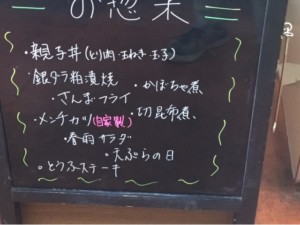 お惣菜
・親子丼(とり肉・玉ねぎ・玉子)
・銀ダラ粕漬焼
・かぼちゃ煮
・さんまフライ
・メンチカツ(自家製)
・切昆布煮
・春雨サラダ
・天ぷらの日
・とうふステーキ